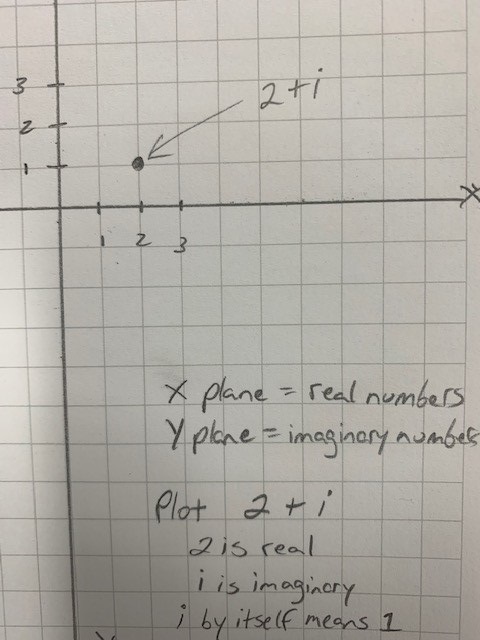 3
2 + i
2
1
X
1 2 3
X plane = real numbers
Y plane = imaginary numbers
Plot 2 + i
2 is real
i is imaginary
i by itself means 1